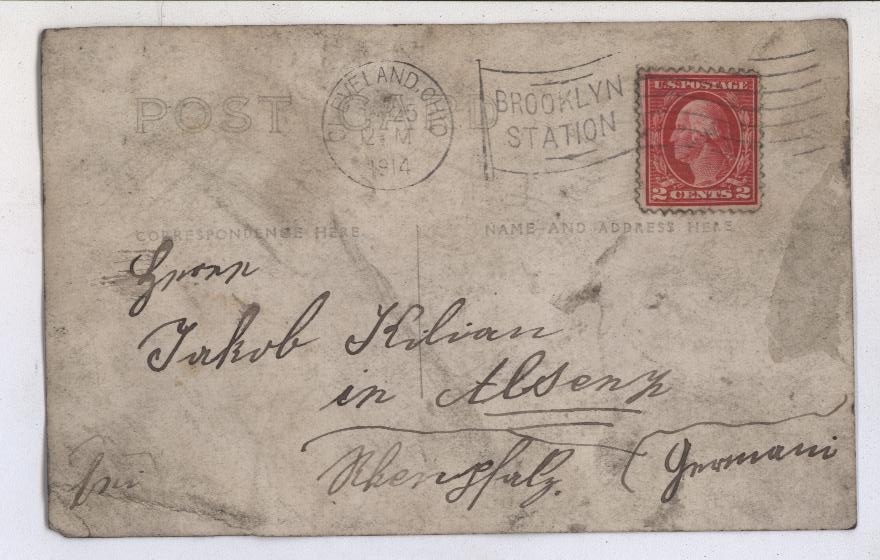 POST CARD
CLEVELAND, OHIO
1914
BROOKLYN
STATION
U.S. POSTAGE
2 CENTS 2
CORRESPONDENCE HERE
NAME AND ADDRESS HERE
Herrn
Jakob Kilian
in Alsenz
Rheinpfalz.
(Germani